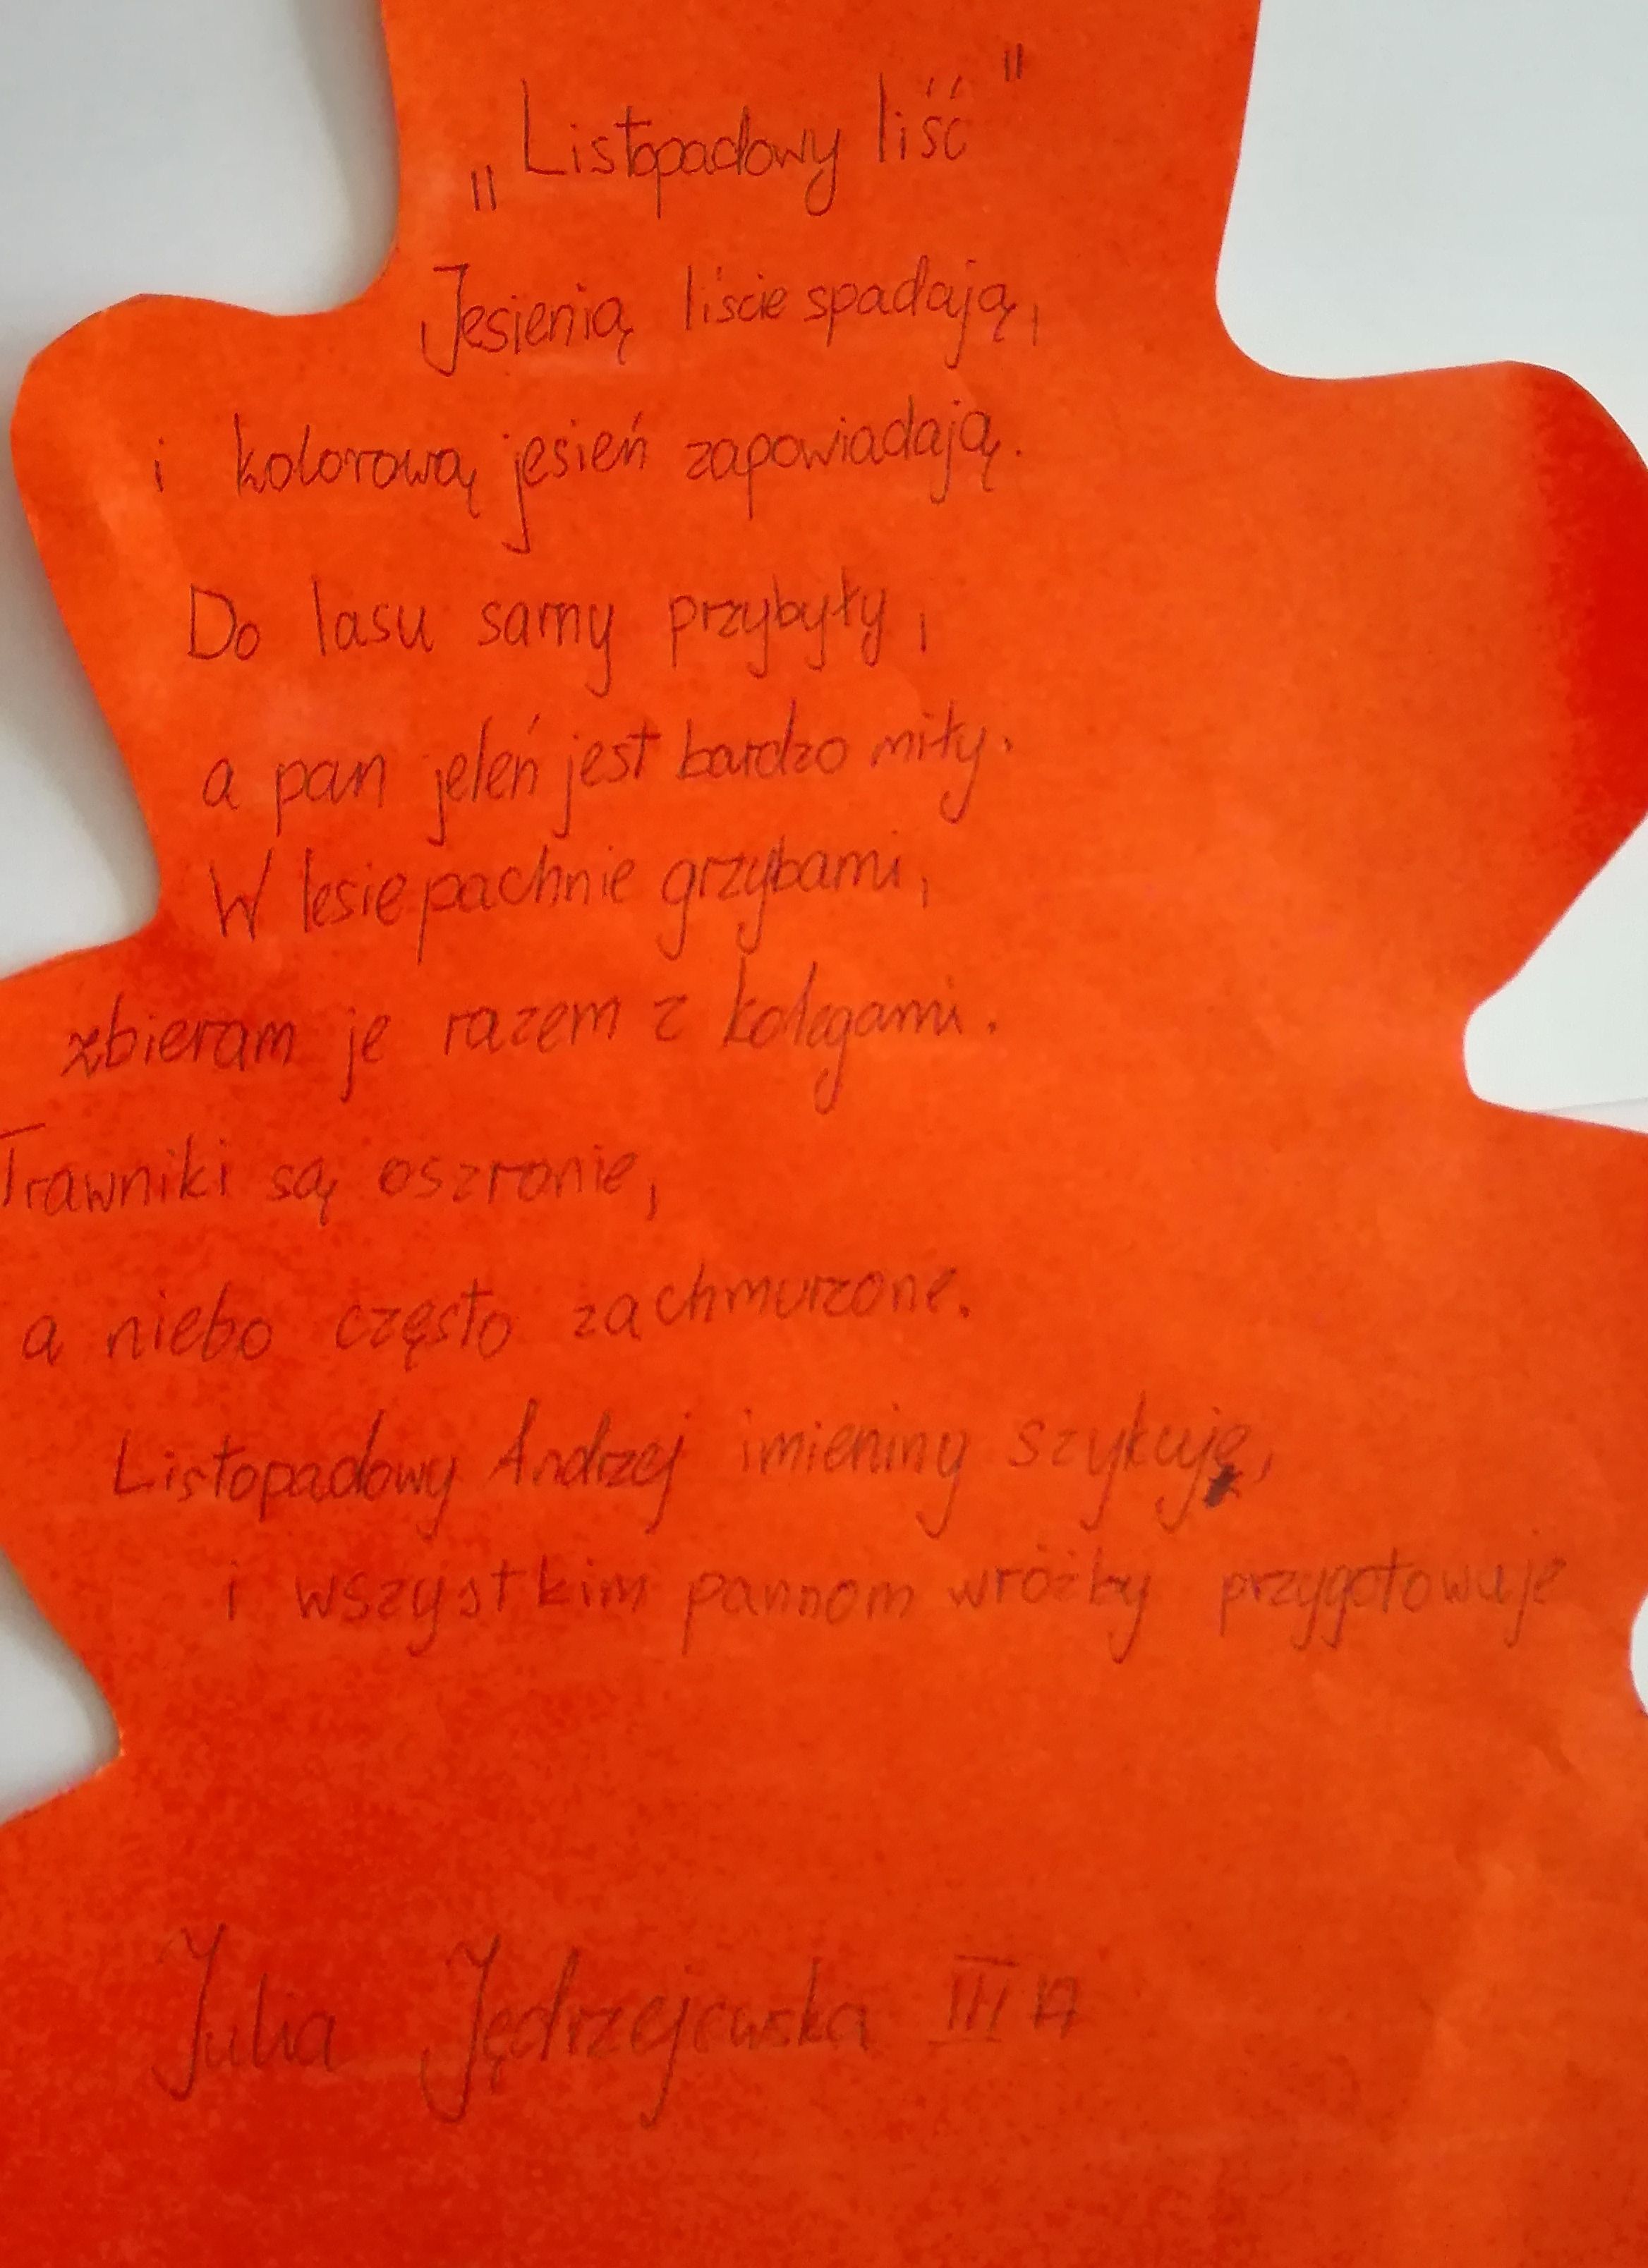 „Listopadowy liść"
Jesienią liście spadają,
i kolorową jesień zapowiadają.
Do lasu sarny przybyły,
a pan jeleń jest bardzo miły.
W lesie pachnie grzybami,
zbieram je razem z kolegami.
Trawniki są oszronie,
a niebo często zachmurzone.
Listopadowy Andrzej imieniny szykuje,
i wszystkim pannom wróżby przygotowuje
Julia Jędrzejewska III A